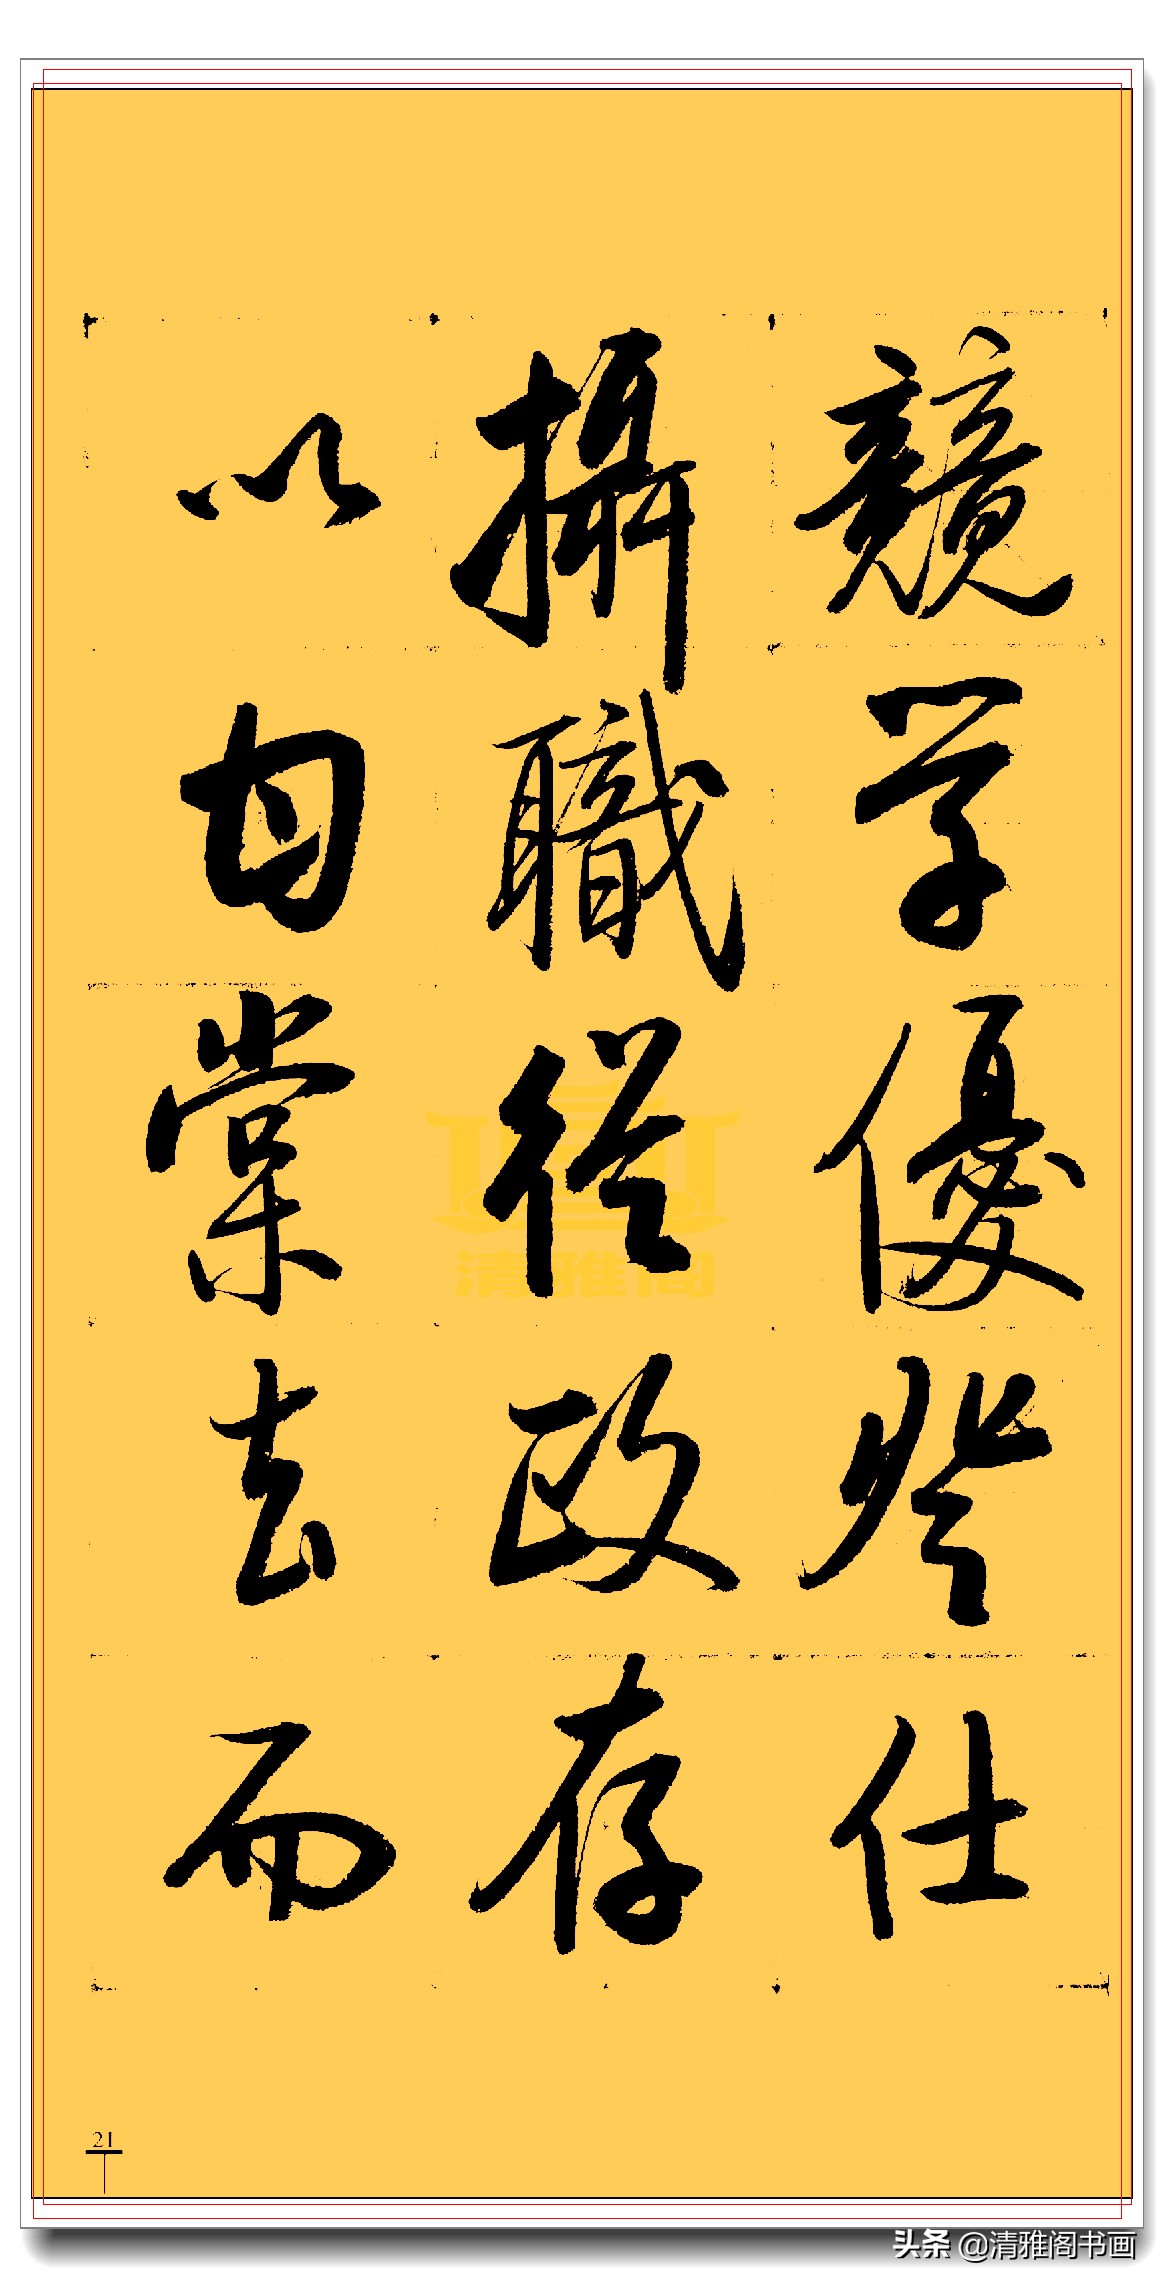 競学優登仕
攝職從政存
以甘棠去而
清雅阁
21
头条 @清雅阁书画